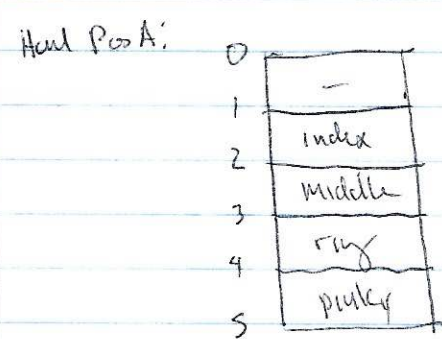 Hand Pos A:
0
-
1
index
2
middle
3
ring
4
pinky
5